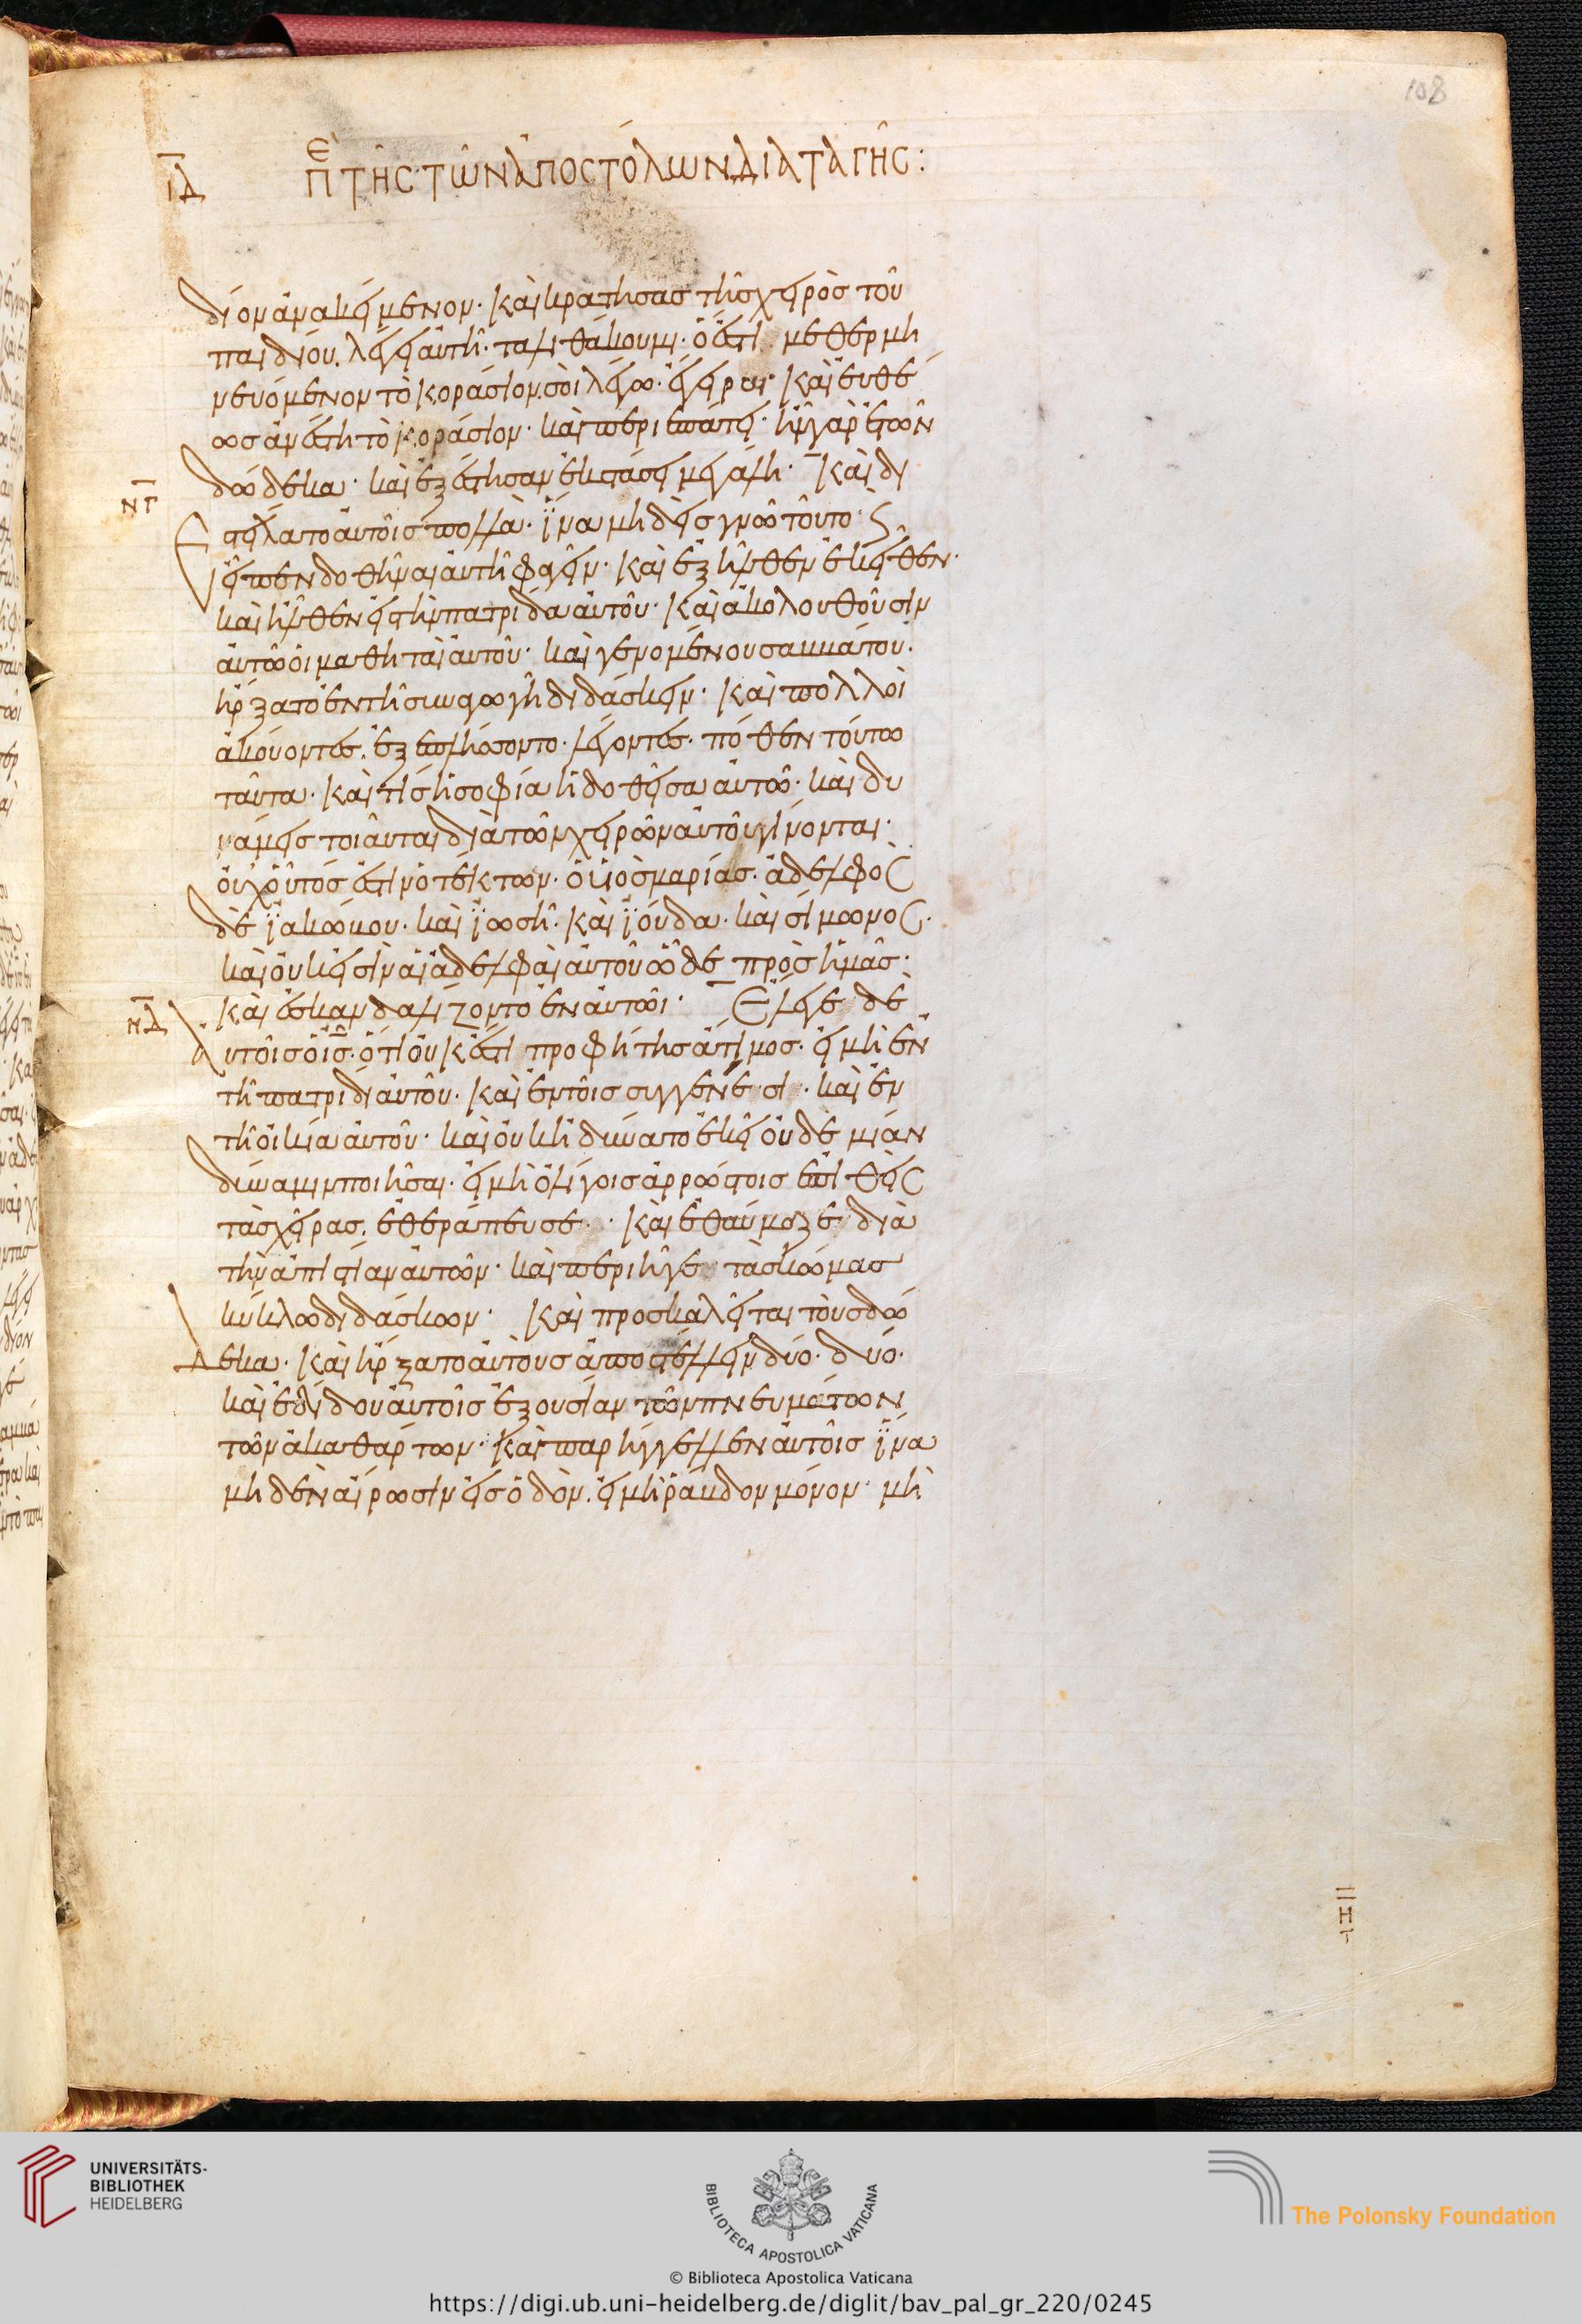 108
ΙΔ ΠΕ ΤΗΣ ΤΩΝ ἈΠΟΣΤΌΛΩΝ ΔΙΑΤΑΓΗ͂Σ:
δίον ἀνακείμενον· καὶ κρατήσας τῆς χειρὸς τοῦ
παιδίου. λέγει αὐτῆ· ταλιθάκουμι· ὅ ἐστι μεθερμη
νευόμενον τὸ κοράσιον. σοὶ λέγω. ἔγειραι· καὶ εὐθέ
ως ἀνέστη τὸ κοράσιον· καὶ περιεπάτει· ἦν γὰρ ἐτῶν
δώδεκα· καὶ ἐξέστησαν ἐκστάσει μεγάλη· Καὶ δι
ΝΓ
εστείλατο αὐτοῖς πολλὰ· ἵνα μηδεὶς γνῶ τοῦτο· ϛ
εἶπεν δοθῆναι αὐτῆ φαγεῖν· Καὶ ἐξῆλθεν ἐκεῖθεν·
καὶ ἦλθεν εἰς τὴν πατρίδα αὐτοῦ· Καὶ ἀκολουθοῦσιν
αὐτῶ οἱ μαθηταὶ αὐτοῦ· καὶ γενομένου σαββάτου.
ἤρξατο ἐν τῆ συναγωγῆ διδάσκειν· Καὶ πολλοὶ
ἀκούοντες. ἐξεπλήσσοντο· λέγοντες· πόθεν τούτω
ταῦτα· Καὶ τίς ἡ σοφία ἡ δοθεῖσα αὐτῶ· καὶ δυ
νάμεις τοιαῦται διὰ τῶν χειρῶν αὐτοῦ γίνονται·
οὐχ οὗτός ἐστιν ὁ τέκτων· ὁ υἱὸς μαρίας· ἀδελφὸς
δὲ ϊακώβου· καὶ ϊωσῆ· Καὶ ϊούδα· καὶ σίμωνος·
καὶ οὐκ εἰσὶν αἱ ἀδελφαὶ αὐτοῦ ὧδε πρὸς ἡμᾶς·
ΝΔ
Καὶ ἐσκανδαλίζοντο ἐν αὐτῶι· Ἔλεγε δὲ
αὐτοῖς ὁ ις. ὅτι οὐκ ἔστι προφήτης ἄτιμος. εἰ μὴ ἐν
τῆ πατρίδι αὐτοῦ· Καὶ ἐν τοῖς συγγενέσι· καὶ ἐν
τῆ οἰκία αὐτοῦ· καὶ οὐκ ἠδύνατο ἐκεῖ οὐδὲ μίαν
δύναμιν ποιῆσαι· εἰ μὴ ὀλίγοις ἀρρώστοις ἐπιθεὶς
τὰς χεῖρας. ἐθεράπευσε· Καὶ ἐθαύμαζε διὰ
τὴν ἀπιστίαν αὐτῶν· καὶ περιῆγε τὰς κώμας
κύκλω διδάσκων· Καὶ προσκαλεῖται τοὺς δώ
δεκα· Καὶ ἤρξατο αὐτοὺς ἀποστέλλειν δύο· δύο·
καὶ ἐδίδου αὐτοῖς ἐξουσίαν τῶν πνευμάτων
τῶν ἀκαθάρτων· Καὶ παρήγγελλεν αὐτοῖς ἵνα
μηδὲν αἴρωσιν εἰς ὁδὸν. εἰ μὴ ῥάβδον μόνον· μὴ
UNIVERSITÄTS-
BIBLIOTHEK
HEIDELBERG
BIBLIOTECA APOSTOLICA VATICANA
The Polonsky Foundation
© Biblioteca Apostolica Vaticana
https://digi.ub.uni-heidelberg.de/diglit/bav_pal_gr_220/0245